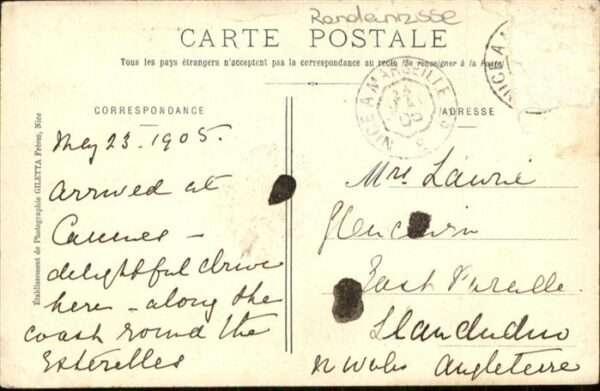 Randanisse
CARTE POSTALE
Tous les pays étrangers n'acceptent pas la correspondance au recto (Se renseigner à la Poste)
CORRESPONDANCE
ADRESSE
NICE A MARSEILLE
NICE A M
Établissement de Photographie GILETTA Frères, Nice
May 23. 1905.
arrived at
Cannes -
delightful drive
here - along the
coast round the
Esterelles
Mrs Lawrie
Glencairn
East Parade
Llandudno
N Wales Angleterre